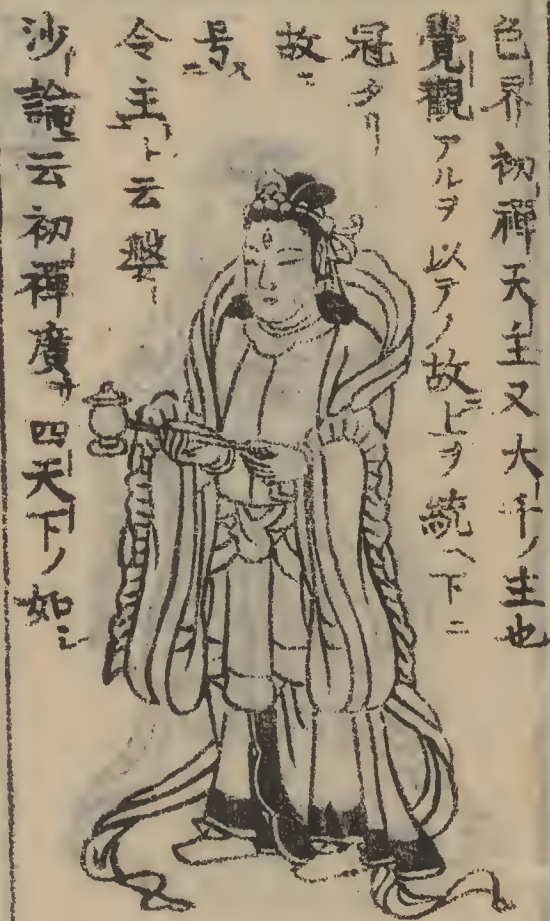 色界初禪天主又大千ノ主也
覺觀アルヲ以テノ故上ヲ統ヘ下ニ
冠タリ
故ニ
号ス
令主ト云婆
沙論云初禪廣サ四天下ノ如シ